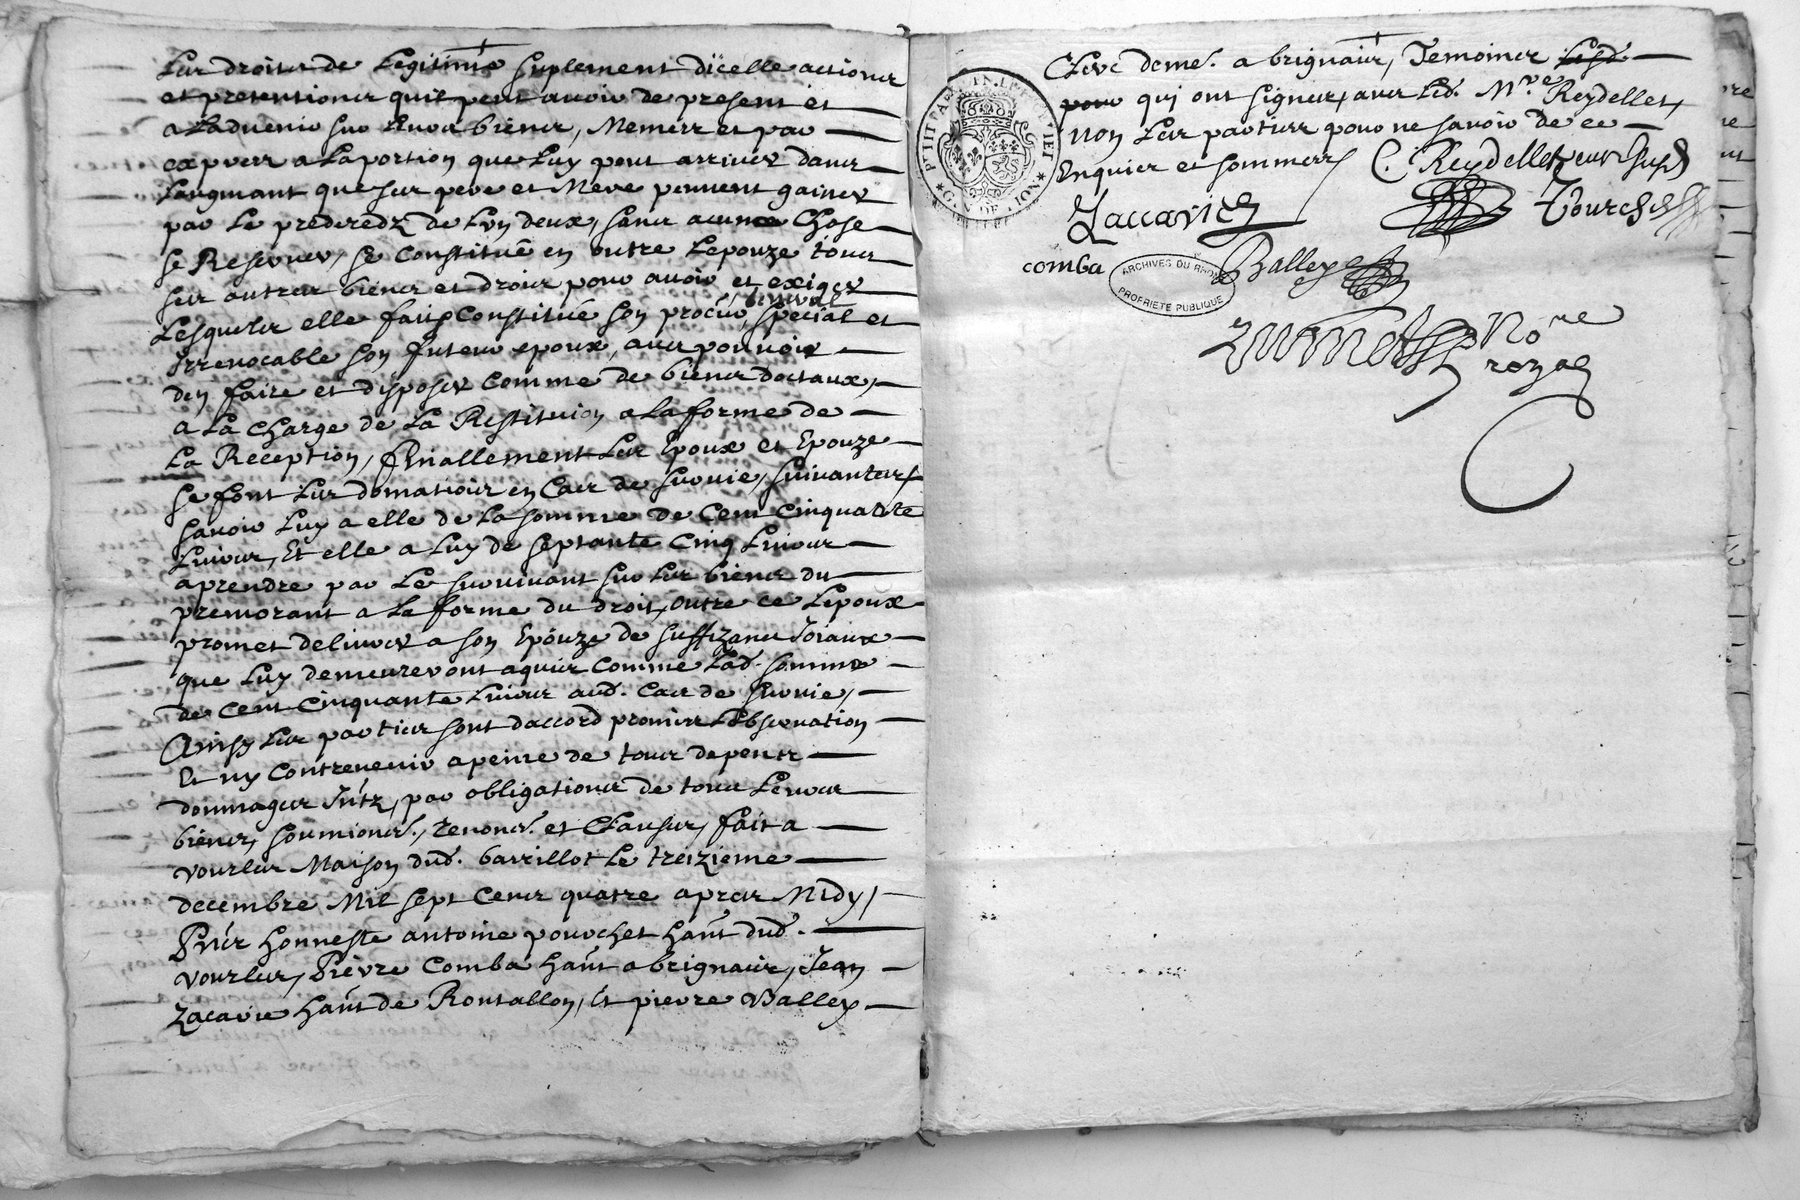 Les droits de Legitime suplement dicelle actions
et pretentions quil peut avoir de present et
a Ladvenir sur leurs biens, Memes et par
expres a La portion que Luy peut arriver dans
Laugmant que ses pere et Mere peuvent gaigner
par Le predecedz de Lun deux, sans aucune Chose
se Reserver, se Constitue en outre Lepouze tous
ses autres biens et droits pour avoir et exiger
Lesquels elle fait, Constitue son procur special et
general
Irrevocable son futeur epoux, avec pouvoir
den faire et disposer Comme de biens doctaux,
a La Charge de La Restituion a La forme de
La Reception, finallement Les Epoux et Epouze
se font Les donations en Cas de survie, suivantes,
savoir Luy a elle de La somme de Cent Cinquante
Livres, Et elle a Luy de septante Cinq Livres
a prendre par Le survivant sur Les biens du
premorant a La forme du droit, outre ce Lepoux
promet delivrer a son Epouze de suffizans Joiaux
que Luy demeureront aquis Comme Lad. somme
de Cent Cinquante Livres aud. Cas de survie,
Ainsy Les parties sont daccord promis Lobservation
Et ny Contrevenir a peine de tous depens
dommages Intz, par obligations de tous Leurs
biens, soumions., renons. et Clauses, fait a
vourles Maison dud. barrillot Le treizieme
decembre Mil sept Cens quatre apres Midy,
Pnts honneste antoine pourchet hant dud.
vourles, Pierre Comba hant a brignais, Jean
Zacarie hant de Rontallon, Et pierre Balley
Clerc deme. a brignais, Temoins
qui ont signes, avec Led. Mre Reydellet,
non Les parties pour ne savoir de ce
Enquis et sommes
C. Reydellet
Zaccarie
Pourchet
comba
Balley
no.re
royal
ARCHIVES DU RHONE
PROPRIETE PUBLIQUE